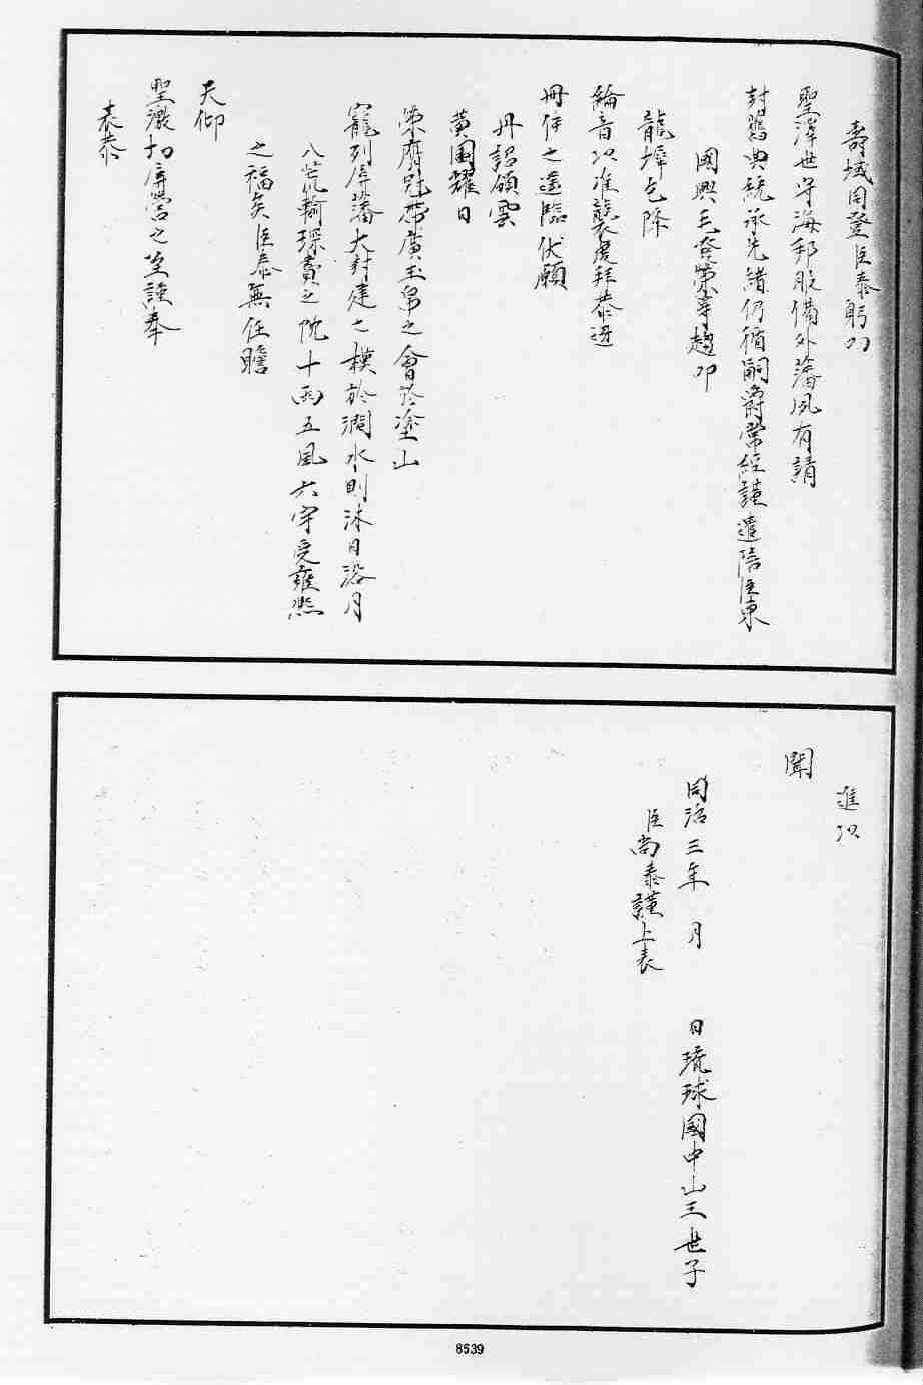 壽域同登臣泰躬叨
聖澤世守海邦脤備外藩夙有請
封舊典統承先緒仍循嗣爵常經謹遣陪臣東
國興毛發榮等趨叩
龍墀乞降
綸音以准襲爵拜恭迓
冊使之遠臨伏願
丹詔頒雲
黃圖耀日
榮膺冠帶廣玉帛之會於塗山
寵列屏藩大封建之模於澗水則沐日浴月
八荒輸琛賮之忱十雨五風六宇受雍熙
之福矣臣泰無任瞻
天仰
聖激切屏營之至謹奉
表恭
進以
聞
同治三年 月 日琉球國中山王世子
臣尚泰謹上表
8539